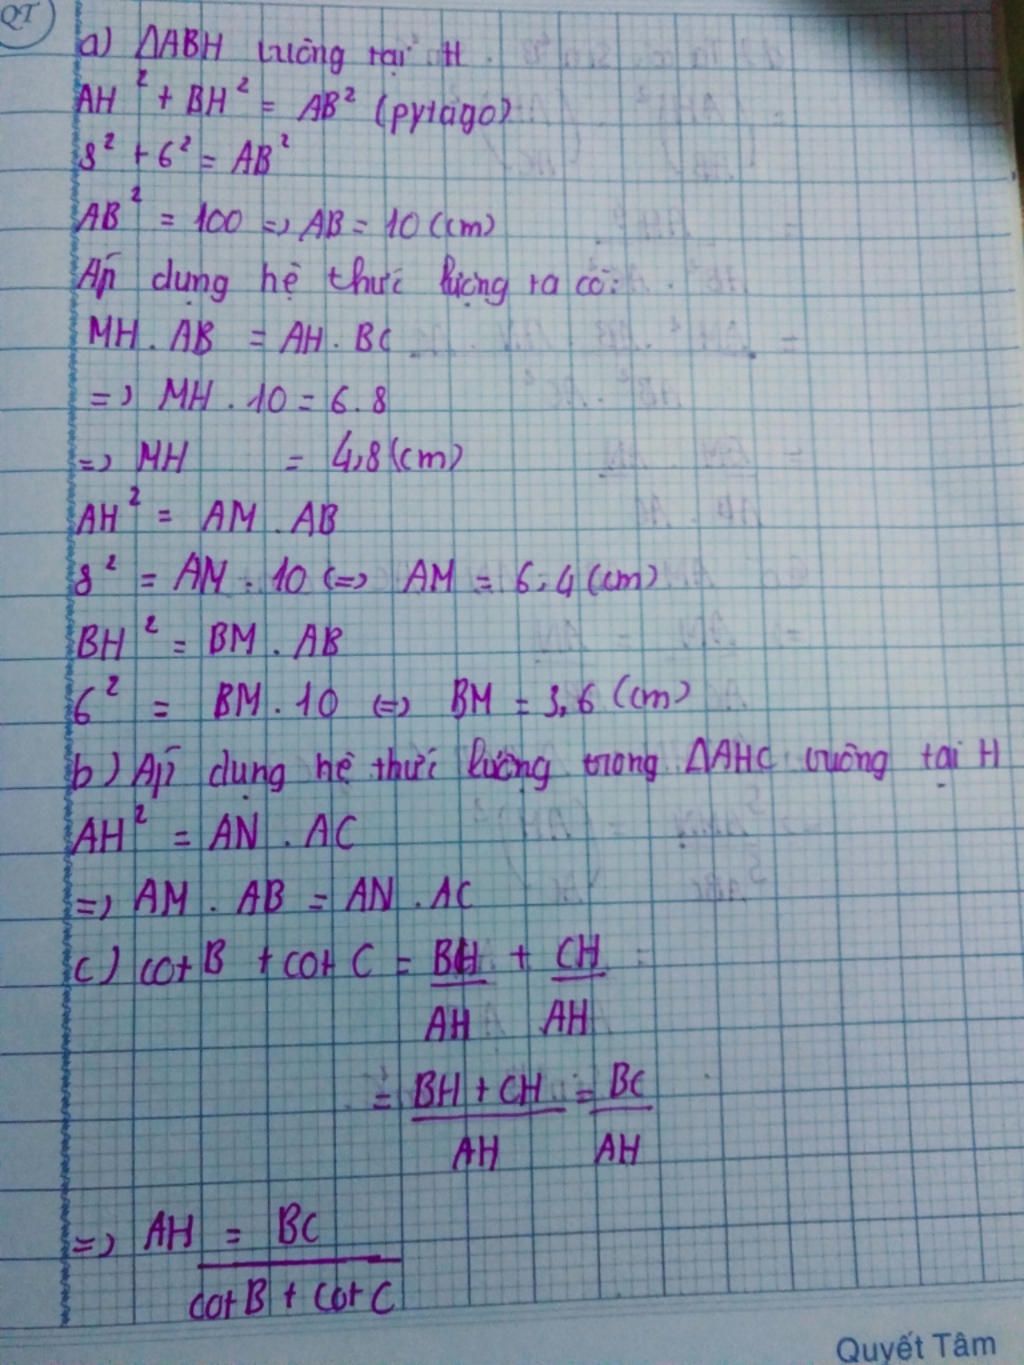 QT
a) ΔABH vuông tại H
AH² + BH² = AB² (pytago)
8² + 6² = AB²
AB² = 100 => AB = 10 (cm)
Áp dụng hệ thức lượng ta có:
MH . AB = AH . BC
=> MH . 10 = 6 . 8
=> MH = 4,8 (cm)
AH² = AM . AB
8² = AM . 10 <=> AM = 6,4 (cm)
BH² = BM . AB
6² = BM . 10 <=> BM = 3,6 (cm)
b) Áp dụng hệ thức lượng trong ΔAHC vuông tại H
AH² = AN . AC
=> AM . AB = AN . AC
c) cot B + cot C = BH/AH + CH/AH =
= (BH + CH)/AH = BC/AH
=> AH = BC/(cot B + cot C)
Quyết Tâm